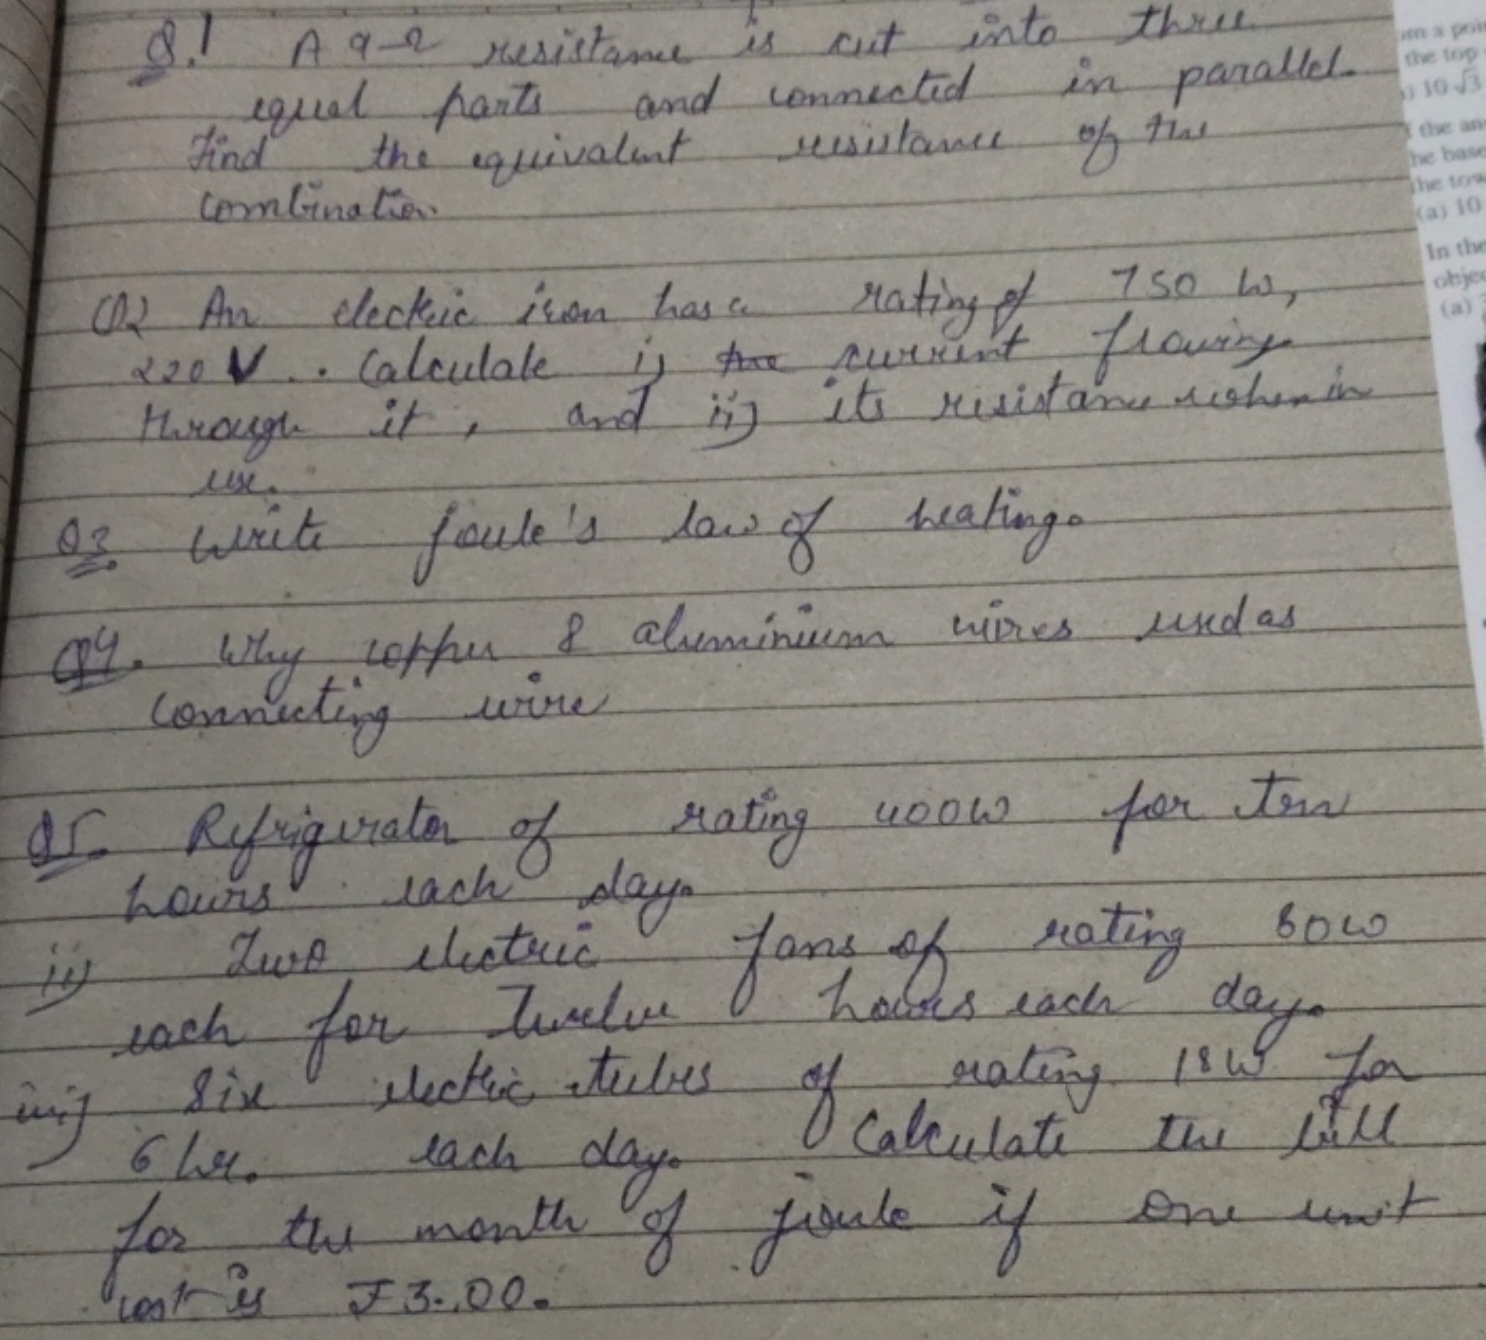 Q.1 A 9-Ω resistance is cut into three
equal parts and connected in parallel.
Find the equivalent resistance of the
combination.
Q2 An electric iron has a rating of 750 W,
220 V. Calculate i) the current flowing
through it, and ii) its resistance when in
use.
Q3 Write joule's law of heating.
Q4. Why copper & aluminium wires used as
connecting wire
Q5. Refrigerator of rating 400W for ten
hours each day.
ii) Two electric fans of rating 80W
each for Twelve hours each day.
iii) Six electric tubes of rating 18W for
6 hr. each day. Calculate the bill
for the month of joule if one unit
cost is ₹3.00.
om a poin
the top
10√3
f the an
he base
the tow
(a) 10
In the
objec
(a)